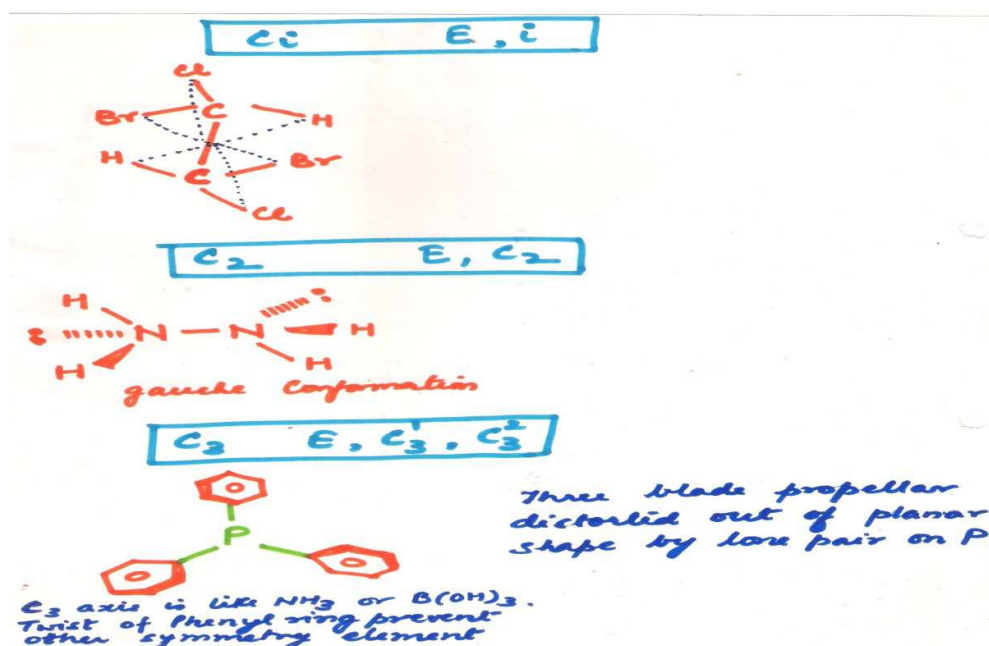 Ci E, i
Cl
Br C H
H C Br
Cl
C2 E, C2
H :
: N — N H
H H
gauche Conformation
C3 E, C3^1, C3^2
P
Three blade propellar
distortid out of planar
shape by lone pair on P
C3 axis is like NH3 or B(OH)3.
Twist of Phenyl ring prevent
other symmetry element